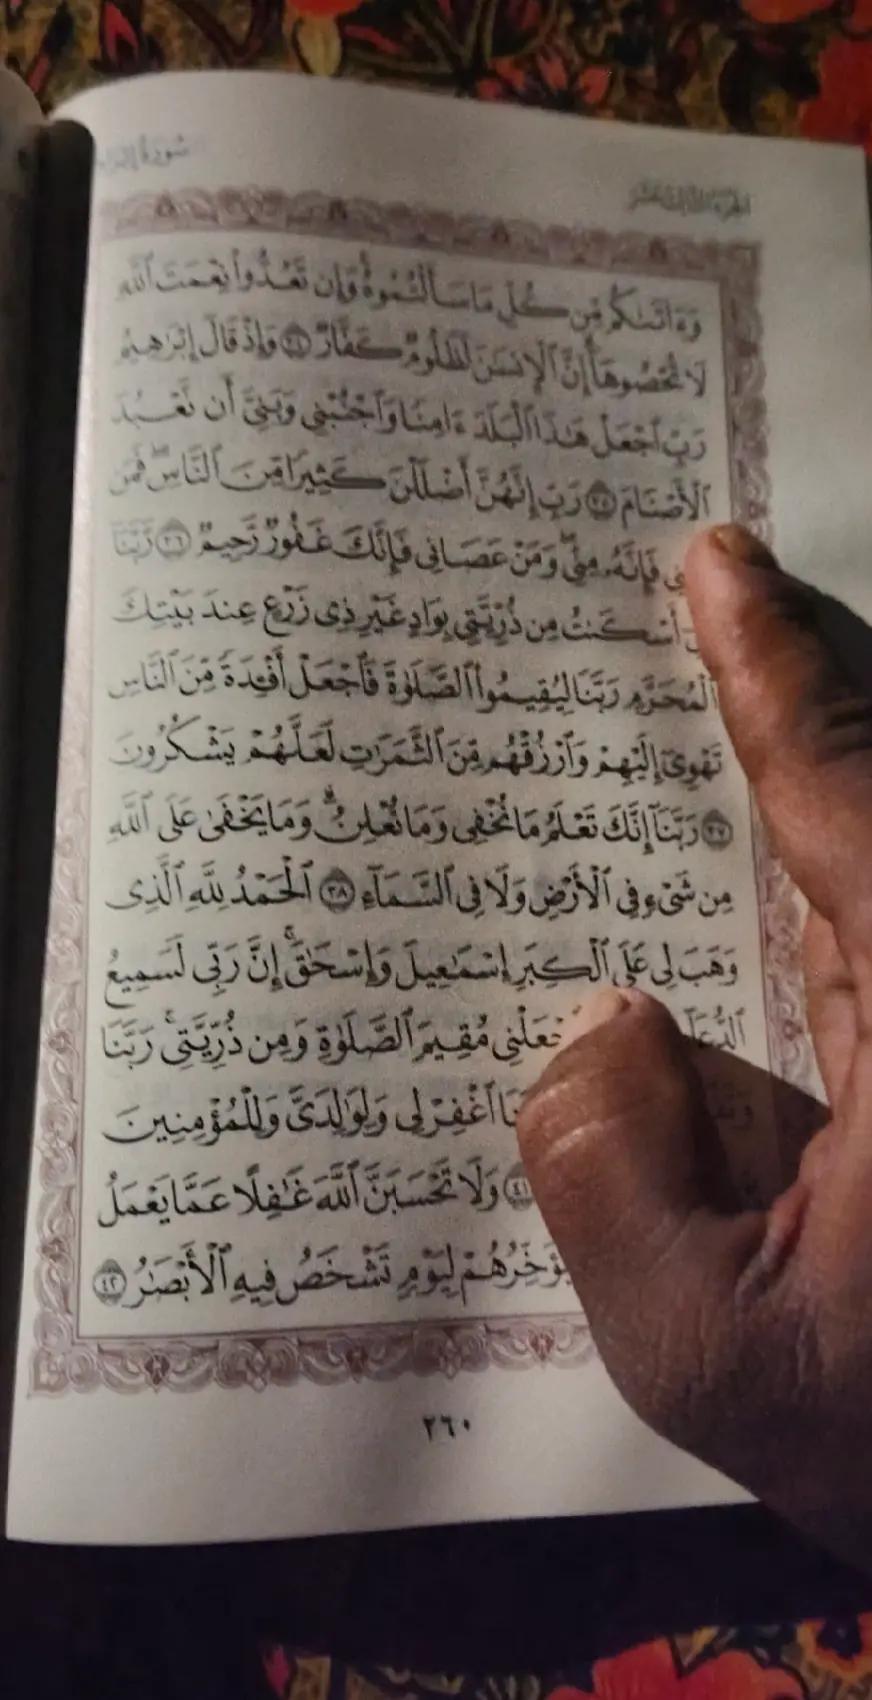 الجزء الثالث عشر
سورة إبراهيم
وَءَاتَىٰكُم مِّن كُلِّ مَا سَأَلْتُمُوهُ ۚ وَإِن تَعُدُّوا۟ نِعْمَتَ ٱللَّهِ
لَا تُحْصُوهَآ ۗ إِنَّ ٱلْإِنسَٰنَ لَظَلُومٌ كَفَّارٌ ٣٤ وَإِذْ قَالَ إِبْرَٰهِيمُ
رَبِّ ٱجْعَلْ هَٰذَا ٱلْبَلَدَ ءَامِنًا وَٱجْنُبْنِى وَبَنِىَّ أَن نَّعْبُدَ
ٱلْأَصْنَامَ ٣٥ رَبِّ إِنَّهُنَّ أَضْلَلْنَ كَثِيرًا مِّنَ ٱلنَّاسِ ۖ فَمَن
فَإِنَّهُۥ مِنِّى ۖ وَمَنْ عَصَانِى فَإِنَّكَ غَفُورٌ رَّحِيمٌ ٣٦ رَّبَّنَآ
أَسْكَنتُ مِن ذُرِّيَّتِى بِوَادٍ غَيْرِ ذِى زَرْعٍ عِندَ بَيْتِكَ
ٱلْمُحَرَّمِ رَبَّنَا لِيُقِيمُوا۟ ٱلصَّلَوٰةَ فَٱجْعَلْ أَفْـِٔدَةً مِّنَ ٱلنَّاسِ
تَهْوِىٓ إِلَيْهِمْ وَٱرْزُقْهُم مِّنَ ٱلثَّمَرَٰتِ لَعَلَّهُمْ يَشْكُرُونَ
٣٧ رَبَّنَآ إِنَّكَ تَعْلَمُ مَا نُخْفِى وَمَا نُعْلِنُ ۗ وَمَا يَخْفَىٰ عَلَى ٱللَّهِ
مِن شَىْءٍ فِى ٱلْأَرْضِ وَلَا فِى ٱلسَّمَآءِ ٣٨ ٱلْحَمْدُ لِلَّهِ ٱلَّذِى
وَهَبَ لِى عَلَى ٱلْكِبَرِ إِسْمَٰعِيلَ وَإِسْحَٰقَ ۚ إِنَّ رَبِّى لَسَمِيعُ
ٱلدُّعَآءِ ٱجْعَلْنِى مُقِيمَ ٱلصَّلَوٰةِ وَمِن ذُرِّيَّتِى ۚ رَبَّنَا
ٱغْفِرْ لِى وَلِوَٰلِدَىَّ وَلِلْمُؤْمِنِينَ
٤١ وَلَا تَحْسَبَنَّ ٱللَّهَ غَٰفِلًا عَمَّا يَعْمَلُ
يُؤَخِّرُهُمْ لِيَوْمٍ تَشْخَصُ فِيهِ ٱلْأَبْصَٰرُ ٤٢
٢٦٠